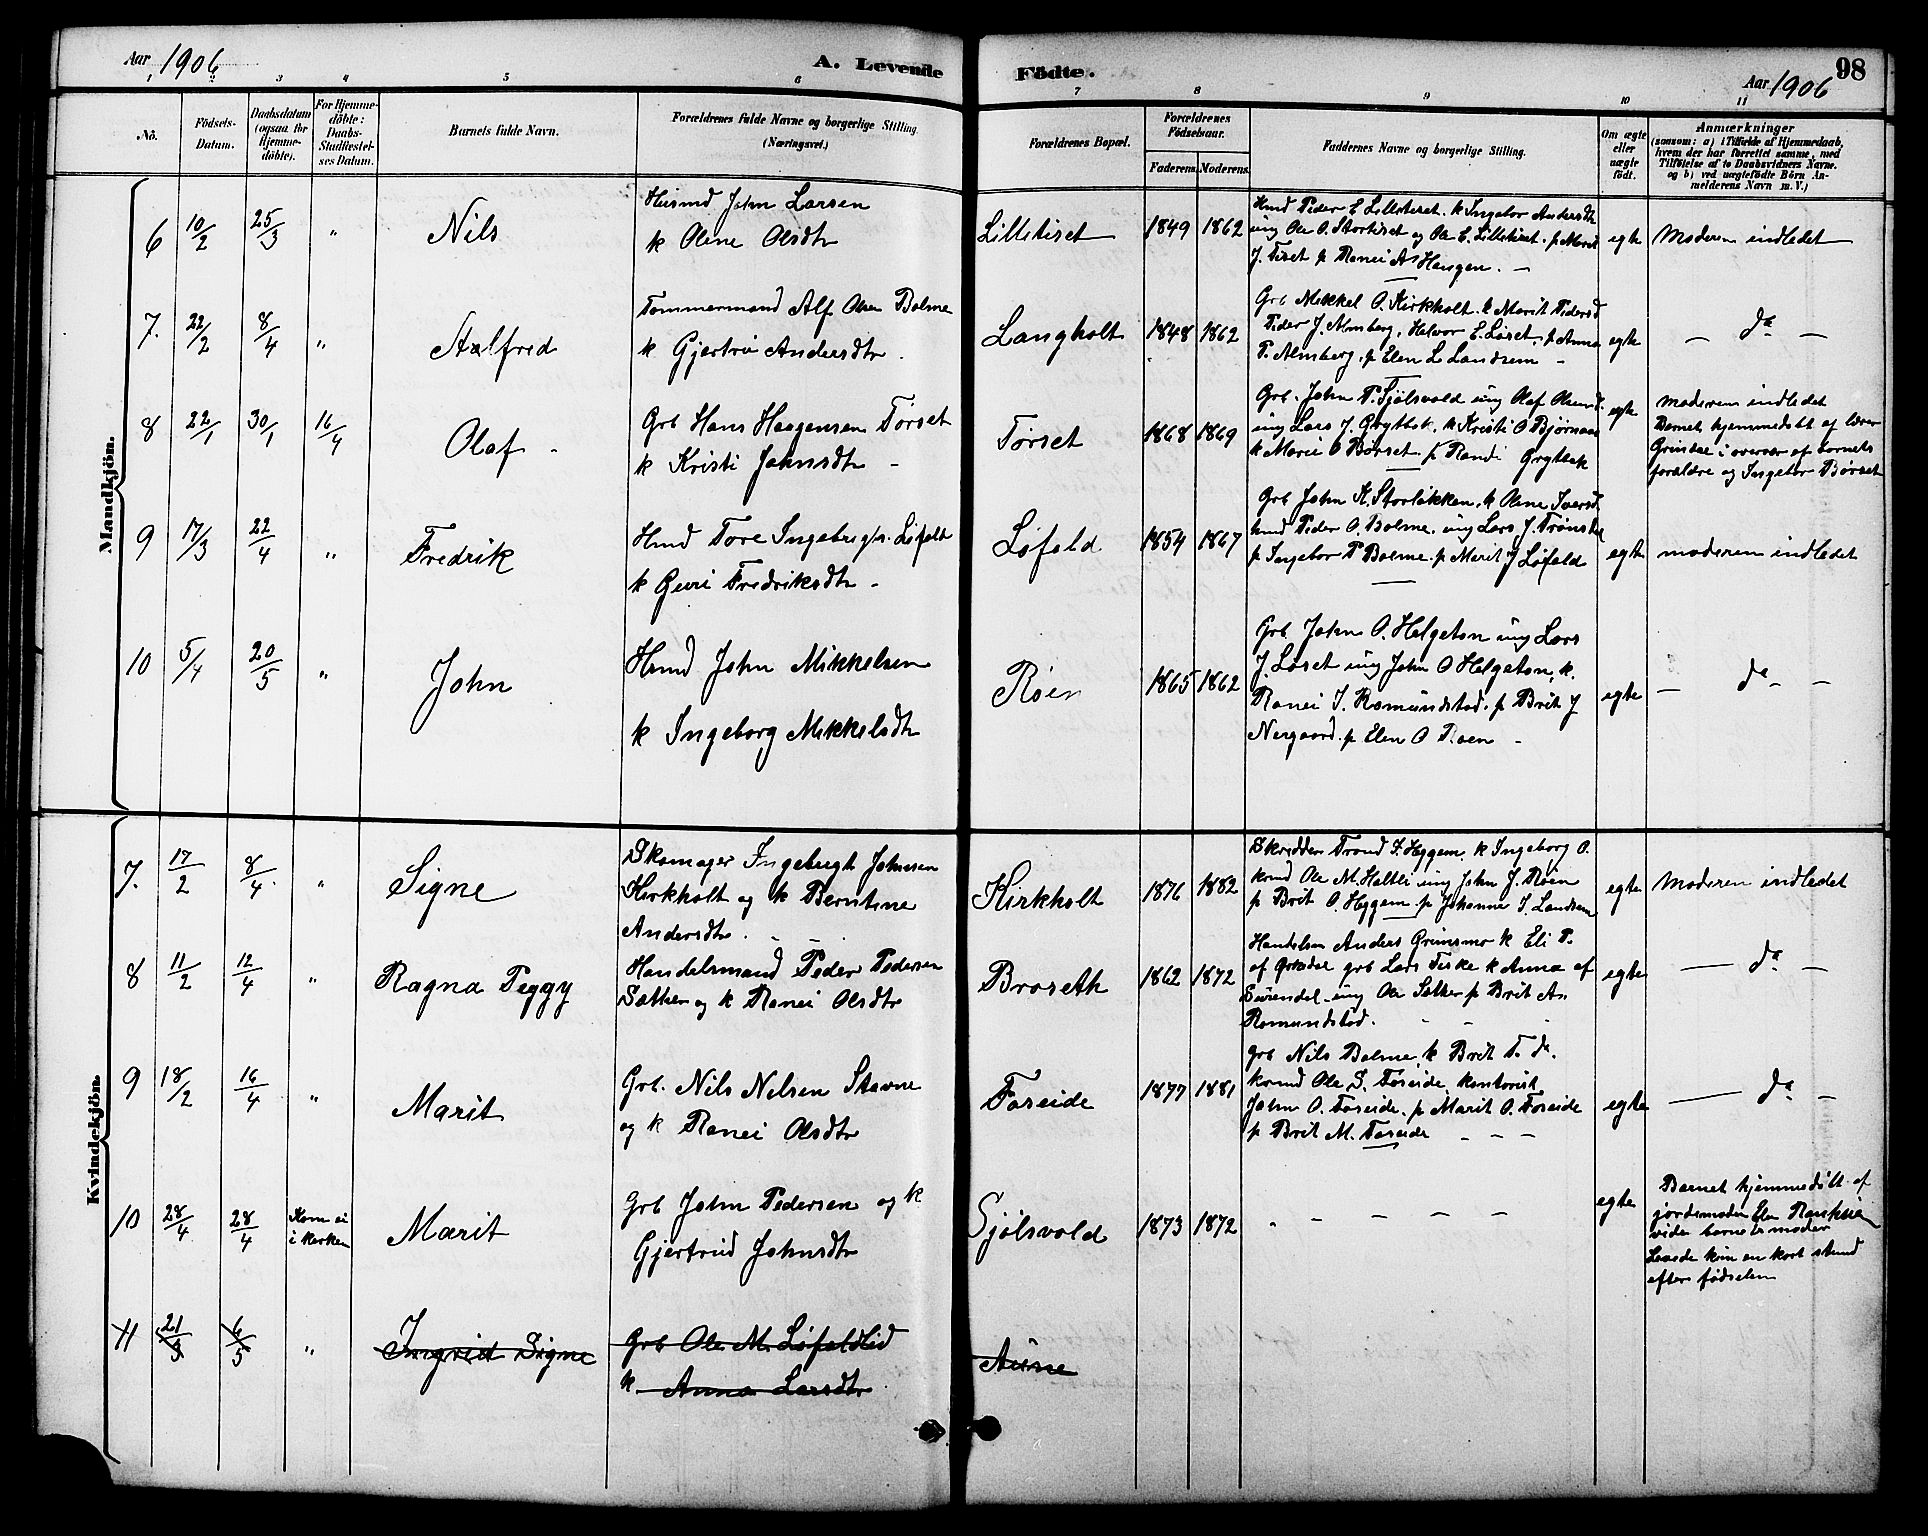 Aar 1906
A. Levende
Födte.
98
Aar 1906
1 2 3 4 5 6 7 8 9 10 11
No.
Födsels-
Datum.
Daabsdatum
(ogsaa for
Hjemme-
döbte).
For Hjemme-
döbte:
Daabs-
Stadfæstel-
ses Datum.
Barnets fulde Navn.
Forældrenes fulde Navne og borgerlige Stilling.
(Næringsvei.)
Forældrenes Bopæl.
Forældrenes
Födselsaar.
Faderens. Moderens.
Faddernes Navne og borgerlige Stilling.
Om ægte
eller
uægte
födt.
Anmærkninger
(saasom: a) i Tilfælde af Hjemmedaab,
hvem der har forrettet samme, med
Tilföielse af to Daabsvidners Navne.
og b) ved uægtefödte Börn An-
melderens Navn m. V.)
Mandkjön.
6 10/2 25/3 "
Nils
Husmd John Larsen
k Olene Olsdtr
Lilletiset
1849 1862
Hmd Peder E Lilletiset. k Ingebor Andersdtr
ung Ole O. Stortiset og Ole E. Lilletiset. p Marit
J. Tiset p Ranei As Haugen. -
egte
Moderen indledet
7. 22/2 8/4 "
Aalfred
Tommermand Alf Olsen Bolme
k Gjertrů Andersdtr.
Langholt
1848 1862
Grb Mikkel O. Kirkholt. k Marit Pedersd
Peder J. Almberg, Halvor E. Løset, p Anna
P. Almberg. p Elen L Landsem -
egte
- do -
8 22/1 30/1 16/4
Olaf -
Grb Hans Haagensen Tørset
k Kristi Johnsdtr -
Tørset
1868 1869
Grb. John P. Sjølsvold ung Olaf Olsen
ung Lars J. Grytbak, k Kristi O Bjørnaas
k Marit O Børset p Randi Grytbak
egte
moderen indledet
Barnet hjemmedøbt af lærer
Grindal i overvær af barnets
forældre og Ingebor Børset
9 17/3 22/4 "
Fredrik
Hmd Tore Ingebrigtsn. Løfald
k Guri Fredriksdtr -
Løfald
1854 1867
Grb John K. Storløkken, k Olene Iversd
hmd Peder O Bolme. ung Lars J. Trønsdal
p Ingebor P Bolme. p Marit J Løfald
egte
moderen indledet
10 5/4 20/5 "
John
Hmd John Mikkelsen
k Ingeborg Mikkelsdtr
Røen
1865 1862
Grb John O. Helgeton ung Lars
J. Løset ung John O Helgeton, k.
Ranei J. Romundstad. p Brit J
Nergaard. p Elen O Røen -
egte
- do -
Kvindekjön.
7. 17/2 8/4. "
Signe
Skomager Ingebrigt Johnsen
Kirkholt og k Berntine
Andersdtr. - -
Kirkholt
1876 1882
Skredder Trond I. Heggem. k Ingeborg O.
kmd Ole M. Holtli ung John J. Røen
p Brit O. Heggem. p Johanne I. Landsem
egte
Moderen indledet
8 11/2 12/4 "
Ragna Peggy
Handelsmand Peder Pedersen
Sæther og k Ranei Olsdtr
Broseth
1862 1872
Handelsm Anders Grimsmo k Eli P.
af Orkedal grb Lars Fiske k Anna af
Surendal. ung Ole Sæther p Brit As.
Romundstad. - - -
egte
- do -
9 18/2 16/4 "
Marit
Grb. Nils Nelsen Stavne
og k Ranei Olsdtr
Foseide
1877 1881
Grb Nils Bolme k Brit T. do.
kmd Ole S. Foseide, kontorist
John O. Foseide. p Marit O. Foseide
p Brit M. Foseide - - -
egte
- do -
10 28/4 28/4 Kom ei
i kirken
Marit
Grb John Pedersen og k
Gjertrud Johnsdtr
Sjølsvold
1873 1872
- - - - -
egte
Barnet hjemmedøbt af
jordemoder Elen
vidne barnets moder
Levede kun en kort stund
efter fødselen
11 21/3 6/5 "
Ingrid Signe
Grb Ole M. Løfaldlid
k Anna Larsdtr
Aune